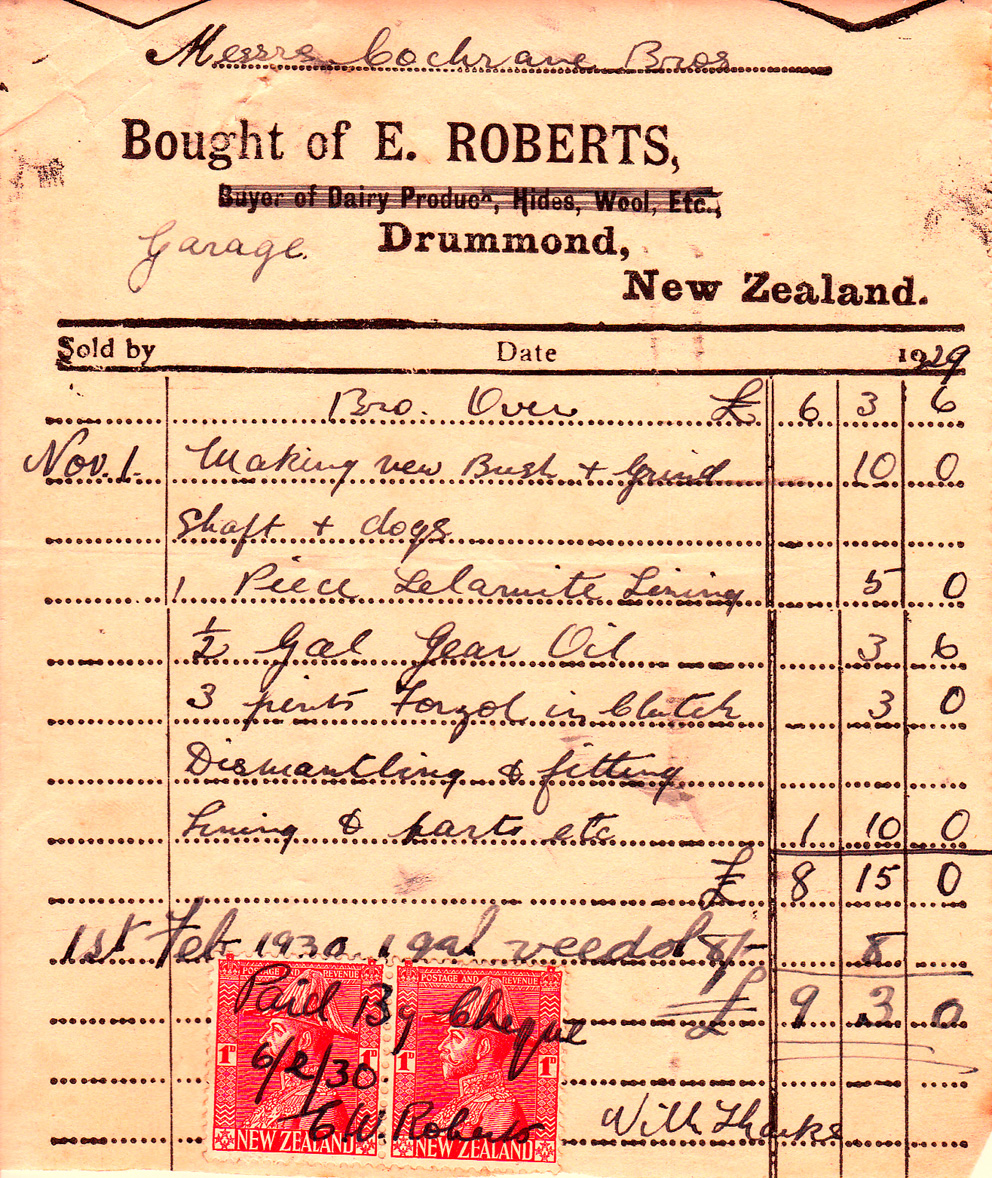 Messrs Cochrane Bros
Bought of E. ROBERTS,
Buyer of Dairy Produce, Hides, Wool, Etc.,
Garage. Drummond,
New Zealand.
Sold by Date 1929
Bro. Over £ 6 3 6
Nov. 1. Making new Bush + Grind 10 0
Shaft + dogs
1 Piece Lining 5 0
1/2 Gal Gear Oil 3 6
3 pints Forzol in Clutch 3 0
Dismantling & fitting
Lining & parts etc 1 10 0
£ 8 15 0
1st Feb 1930 1 gal veedol 8/- 8
£ 9 3 0
POSTAGE AND REVENUE POSTAGE AND REVENUE
Paid By Cheque
1D 1D 1D
6/2/30
E.W. Roberts
With Thanks
NEW ZEALAND NEW ZEALAND